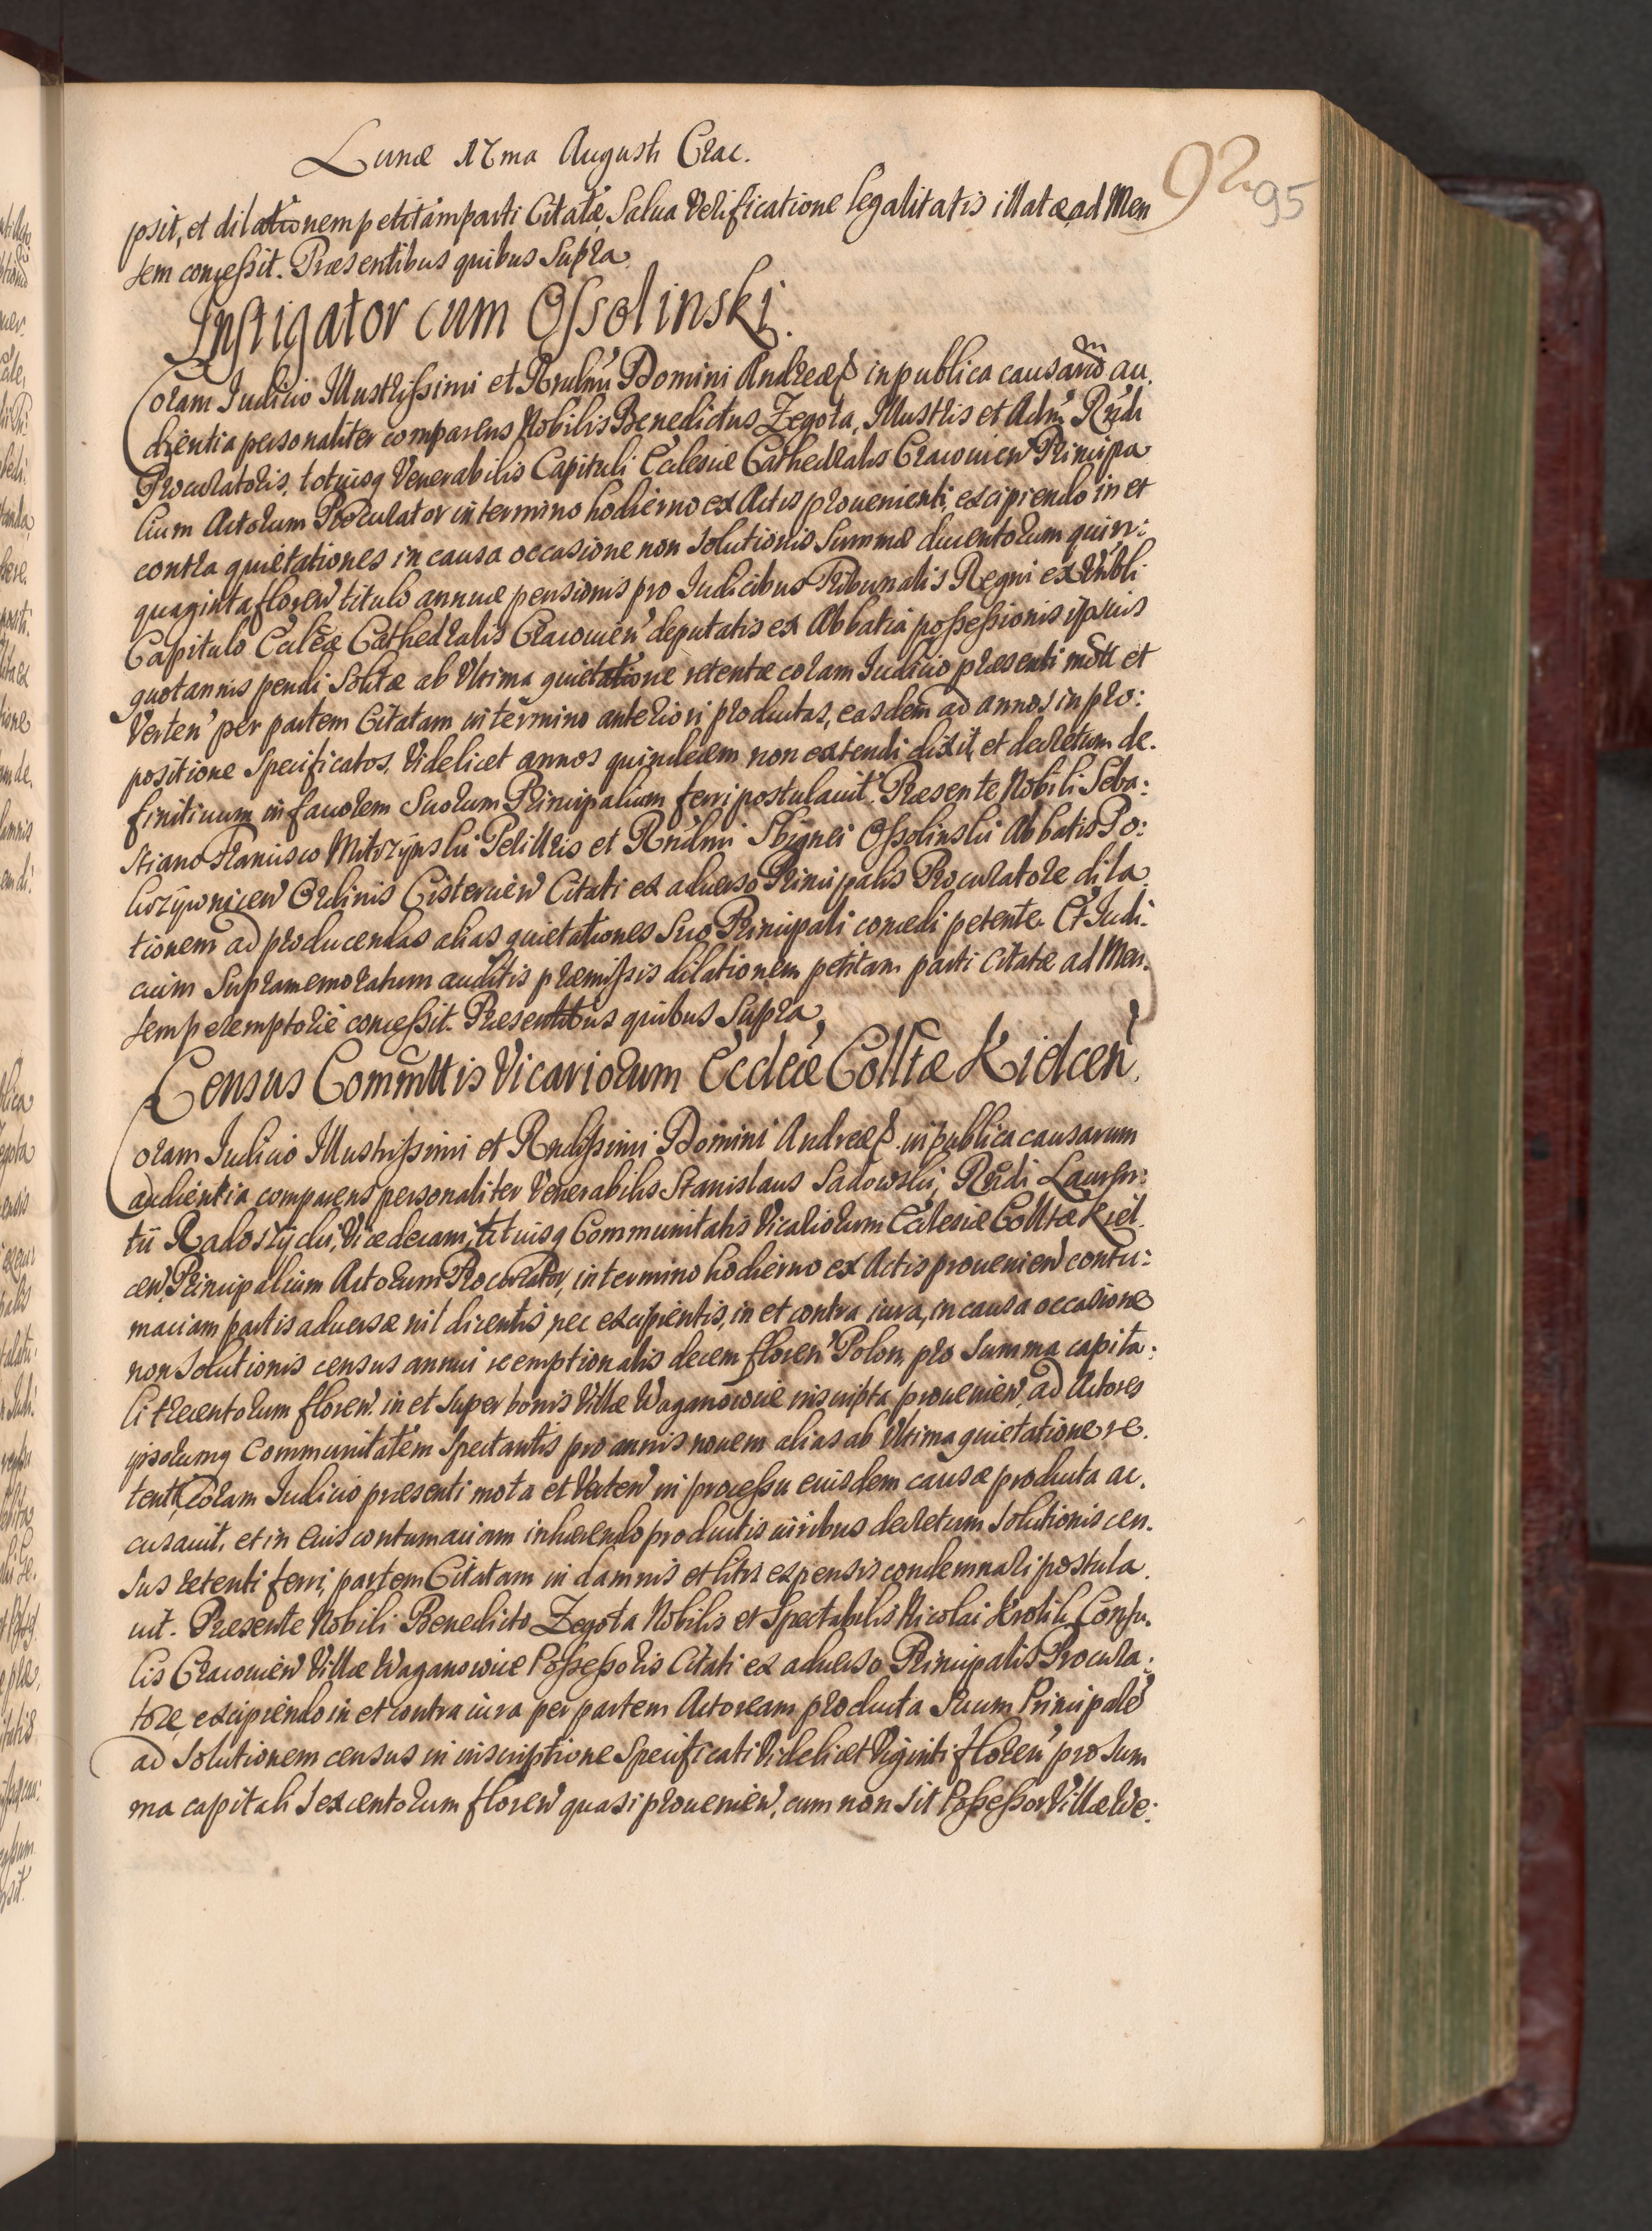 Lunæ 17ma Augusti Crac.
92 95
posit, et dilationem petitam parti Citatæ, Salua Verificatione legalitatis illatæ ad Men
sem concessit. Præsentibus quibus Supra
Instigator cum Ossolinski.
Coram Judicio Illustrissimi et Rndmi Domini Andreæ in publica causarum au.
dientia personaliter comparens Nobilis Benedictus Zegota, Illustris et Adm Rndi
Procuratoris, totiusq Venerabilis Capituli Ecclesiæ Cathedralis Cracouien Principa
lium Actorum Procurator in termino hodierno ex Actis prouenienti, excipiendo in et
contra quietationes in causa occasione non Solutionis Summæ ducentorum quin:
quaginta floren titulo annuæ pensionis pro Judicibus Tribunalis Regni ex Vnbli
Capitulo Ecclæ Cathedralis Cracouien deputatis ex Abbatia possessionis ipsius
quotannis pendi Solitæ ab Vltima quietatione retentæ coram Judicio præsenti motæ et
Verten per partem Citatam in termino anteriori productas, easdem ad annos in pro:
positione Specificatos, Videlicet annos quindecem non extendi dixit, et decretum de.
finitiuum in fauorem Suorum Principalium ferri postulauit. Præsente Nobili Seba:
stiano Francisco Mitrzynski Perillris et Rndmi Sbignei Ossolinski Abbatis Po:
krzywnicen Ordinis Cistercien Citati ex aduerso Principalis Procuratore dila
tionem ad producendas alias quietationes Suo Principali concedi petente. Et Judi:
cium Supramemoratum auditis præmissis dilationem petitam parti Citatæ ad Men.
sem peremptorie concessit. Præsentibus quibus Supra
Census Commttis Vicariorum Ecclæ Colltæ Kielcen
Coram Judicio Illustrissimi et Rndissimi Domini Andreæ in publica causarum
audientia comparens personaliter Venerabilis Stanislaus Sadowski, Rndi Lauren:
tii Radoszycki, Vicedecani, totiusq Communitatis Vicariorum Ecclesiæ Colltæ Kiel.
cen Principalium Actorum Procurator, in termino hodierno ex Actis prouenien contu:
maciam partis aduersæ nil dicentis, nec excipientis, in et contra iura, in causa occasione
non Solutionis census annui reemptionalis decem floren Polon, pro Summa capita:
li trecentorum floren in et Super bonis Villæ Waganowice inscripta prouenien, ad Actores
ipsorumq Communitatem Spectantis pro annis nouem alias ab Vltima quietatione re.
tenti, coram Judicio præsenti mota et Verten in processu eiusdem causæ producta ac.
cusauit, et in eius contumaciam inhærendo productis iuribus decretum Solutionis cen.
sus retenti ferri, partem Citatam in damnis et litis expensis condemnari postula.
uit. Præsente Nobili Benedicto Zegota Nobilis et Spectabilis Nicolai Krolik Consu.
lis Cracouien Villæ Waganowice Possessoris Citati ex aduerso Principalis Procura:
tore, excipiendo in et contra iura per partem Actoream producta Suum Principale
ad Solutionem census in inscriptione Specificati Videlicet Viginti floren pro Sum
ma capitali Sexcentorum floren quasi prouenien, cum non Sit Possessor Villæ We: